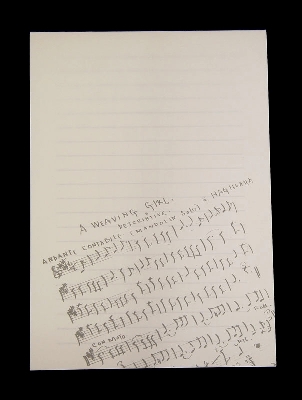 A WEAVING GIRL.
DESCRIPTIVE
ANDANTE CONTABILE (MANDOLIN Solo) S. HAGIHARA
Con Moto